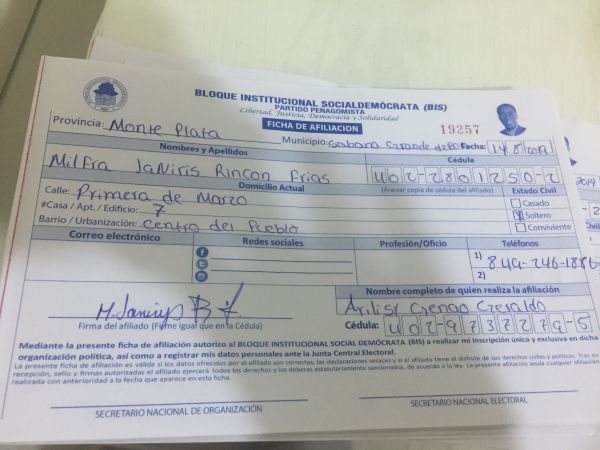 BLOQUE INSTITUCIONAL SOCIALDEMÓCRATA (BIS)
PARTIDO PEÑAGOMISTA
Libertad, Justicia, Democracia y Solidaridad
FICHA DE AFILIACION
19257
Provincia: Monte Plata Municipio: Sabana Grande de Fecha: 14/8/2019
Nombres y Apellidos Cédula
Milfra Janiris Rincon Frias 402-2801250-2
Domicilio Actual (Anexar copia de cédula del afiliado) Estado Civil
Calle: Primera de Marzo Casado
#Casa / Apt. / Edificio: 7 Soltero
Barrio / Urbanización: Centro del Pueblo Conviviente
Correo electrónico Redes sociales Profesión/Oficio Teléfonos
1) 849-246-1886
2)
Nombre completo de quien realiza la afiliación
Arilisy Crengo Geraldo
Firma del afiliado (Firme igual que en la Cédula) Cédula: 402-9737279-5
Mediante la presente ficha de afiliación autorizo al BLOQUE INSTITUCIONAL SOCIAL DEMÓCRATA (BIS) a realizar mi inscripción única y exclusiva en dicha
organización política, así como a registrar mis datos personales ante la Junta Central Electoral.
La presente ficha de afiliación es válida si los datos ofrecidos por el afiliado son correctos, las declaraciones veraces y si el afiliado tiene el disfrute de sus derechos civiles y políticos. Tras su
recepción, sello y firmas autorizadas el afiliado ejercerá todos los derechos y los deberes estatutariamente sancionados, de acuerdo a la ley. La presente afiliación anula cualquier afiliación
realizada con anterioridad a la fecha que aparece en esta ficha.
SECRETARIO NACIONAL DE ORGANIZACIÓN SECRETARIO NACIONAL ELECTORAL